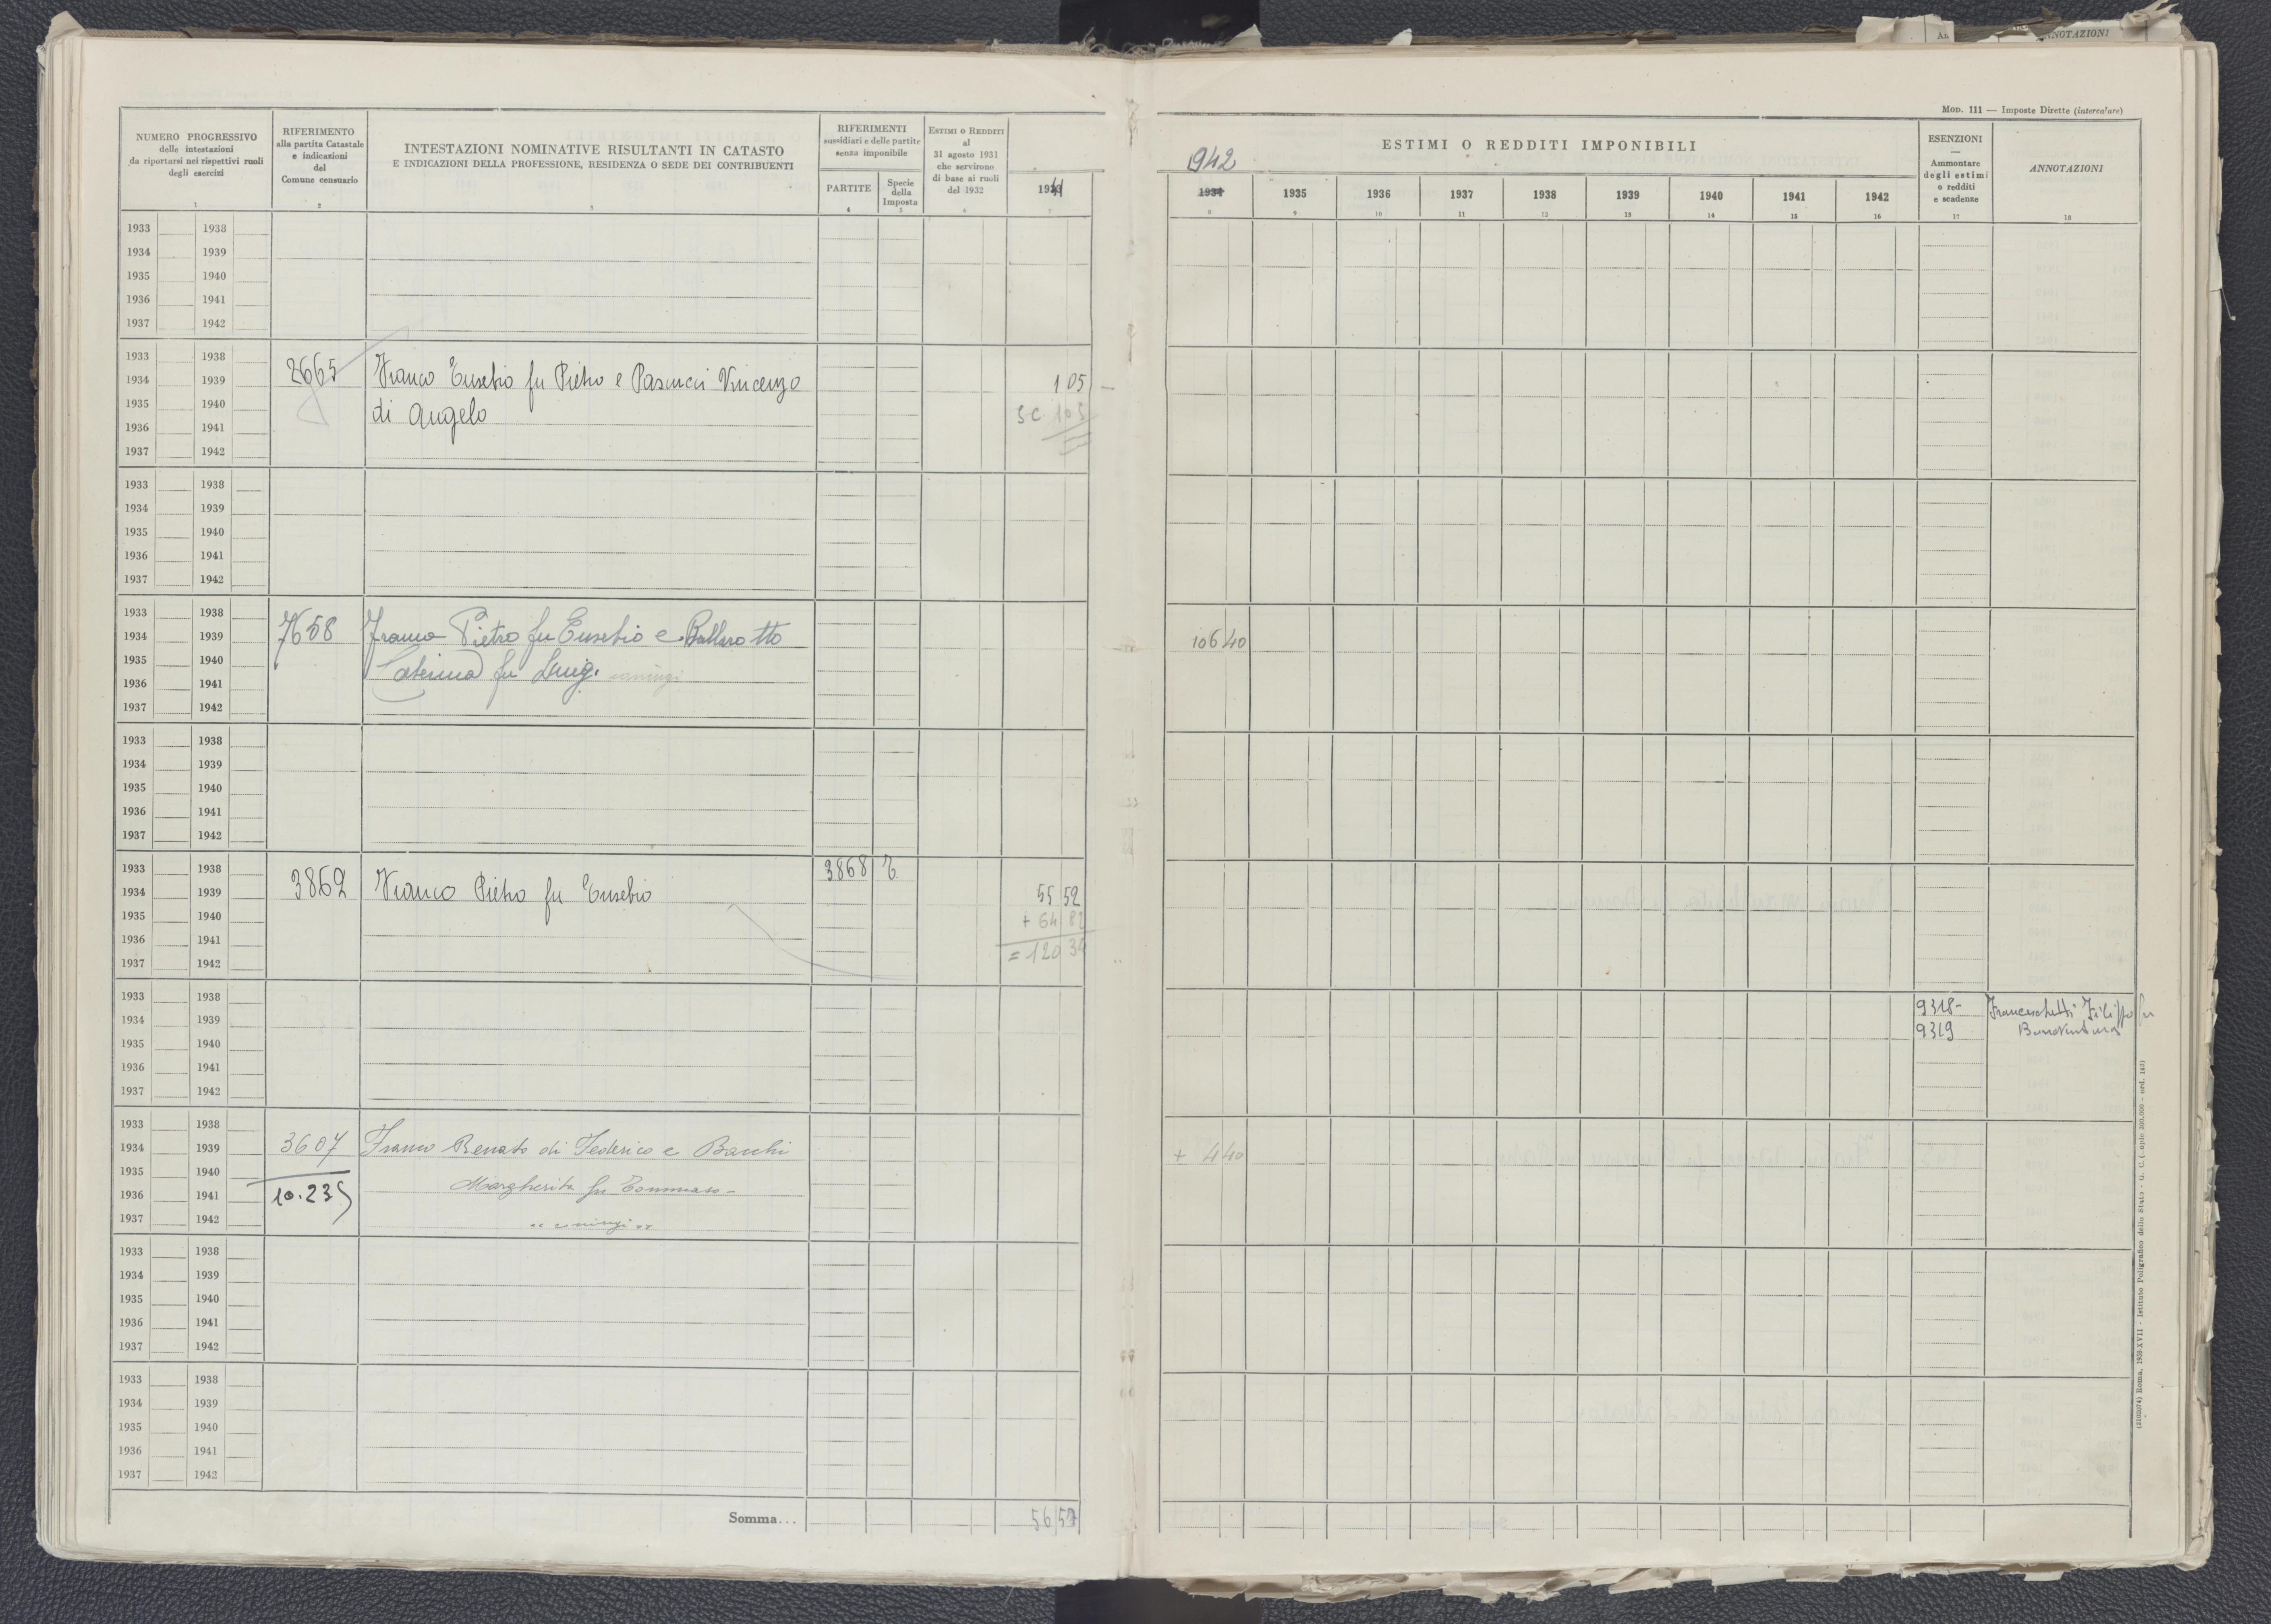 ANNOTAZIONI
MOD. 111 — Imposte Dirette (intercalare)
NUMERO PROGRESSIVO
delle intestazioni
da riportarsi nei rispettivi ruoli
degli esercizi
1
RIFERIMENTO
alla partita Catastale
e indicazioni
del
Comune censuario
2
INTESTAZIONI NOMINATIVE RISULTANTI IN CATASTO
E INDICAZIONI DELLA PROFESSIONE, RESIDENZA O SEDE DEI CONTRIBUENTI
3
RIFERIMENTI
sussidiari e delle partite
senza imponibile
PARTITE
4
Specie
della
Imposta
5
ESTIMI O REDDITI
al
31 agosto 1931
che servirono
di base ai ruoli
del 1932
6
1941
7
ESTIMI O REDDITI IMPONIBILI
942
1934 1935 1936 1937 1938 1939 1940 1941 1942
8 9 10 11 12 13 14 15 16
ESENZIONI
—
Ammontare
degli estimi
o redditi
e scadenze
17
ANNOTAZIONI
18
1933 1938
1934 1939
1935 1940
1936 1941
1937 1942
1933 1938
1934 1939 2665 Franco Eusebio fu Pietro e Pasucci Vincenzo 1 05
1935 1940 di Angelo SC. 105
1936 1941
1937 1942
1933 1938
1934 1939
1935 1940
1936 1941
1937 1942
1933 1938
1934 1939 7658 Franco Pietro fu Eusebio e Ballarotto 106 40
1935 1940 Caterina fu Luigi coniugi
1936 1941
1937 1942
1933 1938
1934 1939
1935 1940
1936 1941
1937 1942
1933 1938 3868
1934 1939 3862 Franco Pietro fu Eusebio 55 52
1935 1940 + 64 82
1936 1941 = 120 34
1937 1942
1933 1938 9318- Franceschetti Filippo fu
1934 1939 9319 Bonaventura
1935 1940
1936 1941
1937 1942
1933 1938
1934 1939 3607 Franco Renato di Federico e Bacchi + 4 40
1935 1940
1936 1941 10.235 Margherita fu Tommaso -
1937 1942 " coniugi "
1933 1938
1934 1939
1935 1940
1936 1941
1937 1942
1933 1938
1934 1939
1935 1940
1936 1941
1937 1942
Somma... 56 57
(2102074) Roma, 1938-XVII - Istituto Poligrafico dello Stato - G. C. (copie 300.000 - ord. 143)